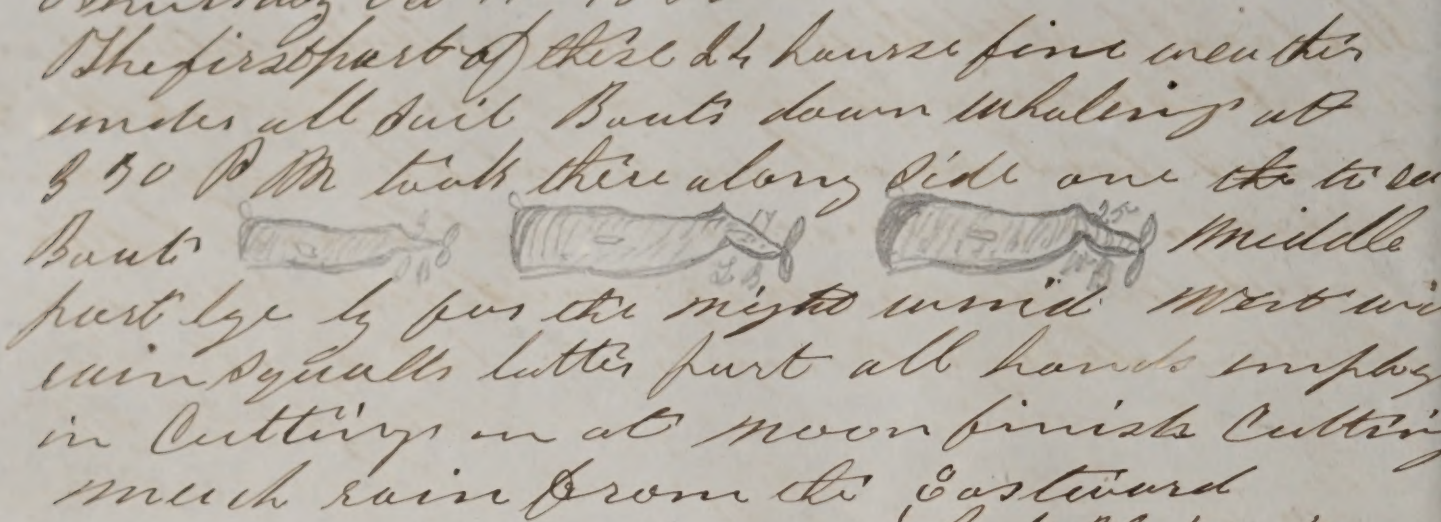 Thursday
The first part of these 24 hourse fine weather
under all Sail Boats down whaling at
3 30 P M took three along side one to
Boats 17 L B 25 W B Middle
part lye by for the night wind West
rain Squalls latter part all hands employ
in Cutting in at noon finish Cutting
much rain from the Eastward